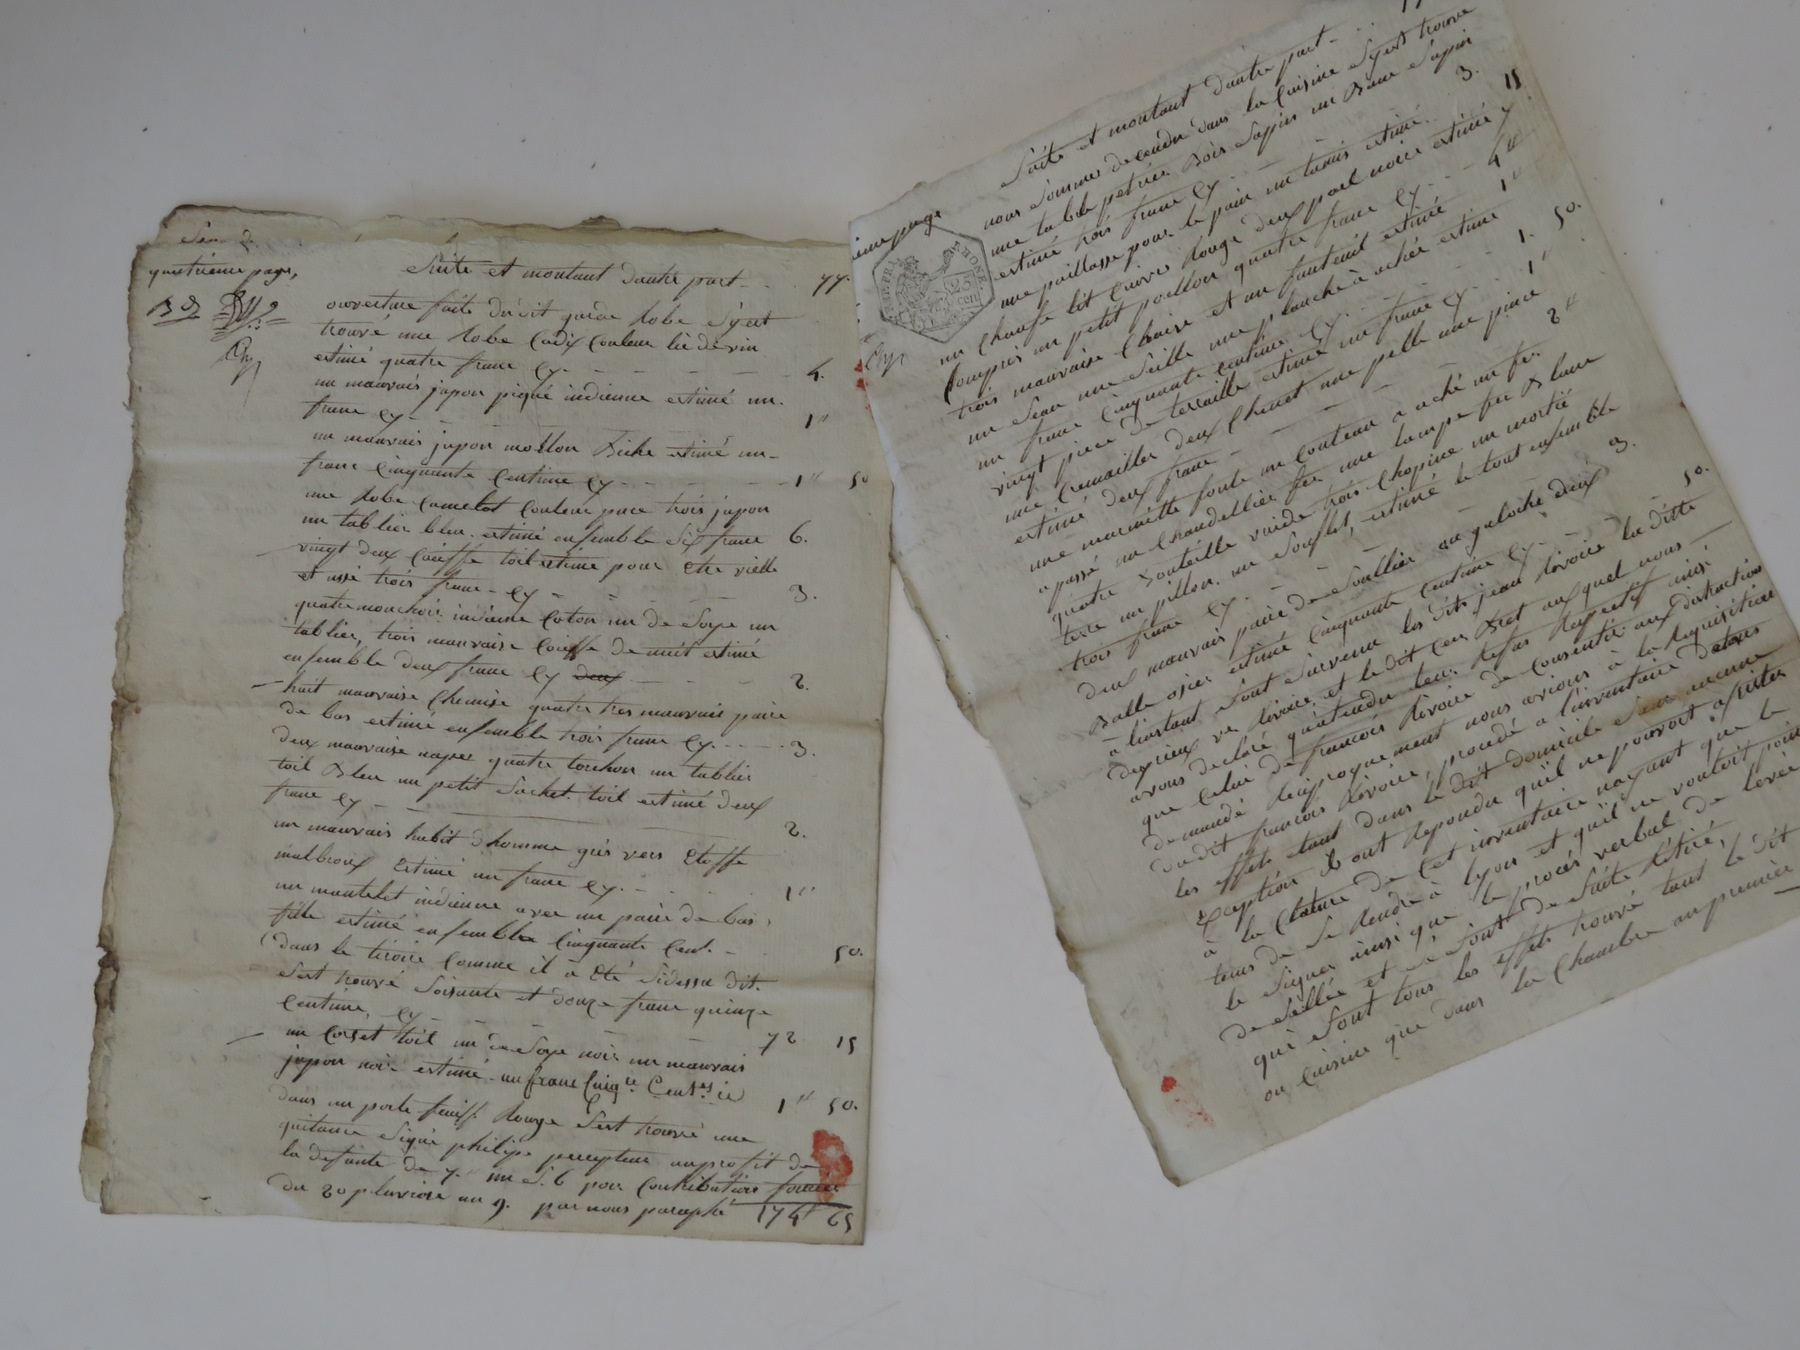 quatrieme page,
Suite et montant dautre part - - 77.
ouverture faite dudit garde Robe S'y est
trouvé une Robe Cadix Couleur lie de vin
estimé quatre franc Cy - - - - - 4.
un mauvais jupon piqué indienne estimé un
franc Cy - 1"
un mauvais jupon mollon Biche estimé un
franc Cinquante Centime Cy - - - - 1" 50
une Robe Camelot Couleur puce trois jupon
un tablier bleu estimé ensemble Six franc 6.
vingt deux Coëffe toil estimé pour etre vielle
et usé trois franc - Cy - - - 3.
quatre mouchoir indienne Coton un de Soye un
tablier, trois mauvaise Coiffe de nuit estimé
ensemble deux franc Cy deux - - - 2.
huit mauvaise Chemise quatre tres mauvais paire
de bas estimé ensemble trois franc Cy - - - 3.
deux mauvaise napes quatre torchon un tablier
toil Bleu un petit Sachet toil estimé deux
franc Cy - - 2.
un mauvais habit d'homme gris vers Etoffe
malbroux Estimé un franc Cy - - - 1"
un mantelet indienne avec un paire de bas
fille estimé ensemble Cinquante Cent. - 50.
dans le tiroir Comme il a Eté Sidessu dit
Sest trouvé Soisante et douze franc quinze
Centime, Cy - - - - 72 15
un Corset toil un de Soye noir un mauvais
jupon noir estimé un franc Cinq.te Cent.es ici 1" 50.
dans un porte feuill. Rouge Sest trouvé une
quitance Signé philipe percepteur au profit de
la defunte de 7." un S. 6 pour Contribution
du 20 pluviose an 9. par nous paraphé 174" 65
ieme page
RHONE
25
cen
Suite et montant dautre part - .
nous Sommes decendu dans la Cuisine S'y est trouvé
une table petrier Bois Sappin un Banc Sapin
estimé trois franc Cy - - - 3.
une paillasse pour le pain un tamis estimé 15
un Chaufe lit Cuivre Rouge deux poel noire estimé 7
Compris un petit poellon quatre franc Cy - - - 4"
trois mauvaise Chaise et un fauteuil estimé 1"
un Seau une Seille une planche à achée estimé
un franc Cinquante Centime Cy - - - 1. 50.
vingt piece de terraille estimé un franc Cy - 1"
une Cremailler deux Chenet une pelle une pince
estimé deux franc - - - 2"
une marmitte fonte un Couteau a aché un fer
a passé un Chandellier fer une lampe fer Blanc
quatre Bouteille vuide trois Chopine un mortié
terre un pillon un Souflet, estimé le tout ensemble
trois franc Cy - - - 3.
deux mauvais paire de Soullier ou galoche deux
Balle osier estimé Cinquante Centime Cy - - 50.
à linstant Sont Survenu les dits jean Rivoire la ditte
ve Rivoire, et le dit Cen Bret aux quel nous
avons declaré qu'atendu leur Refus Respectif ainsi
que Celui de francois Rivoire de Consentir aux distraction
demandé Reciproquement nous avions à la Requisition
du dit francois Rivoire, procedé a l'inventaire de tous
les effets etant dans le dit domicile Sans aucune
Exception ils ont Repondu qu'il ne pouvoit assister
à la Cloture de Cet inventaire nayant que le
tems de Se Rendre à lyon et qu'il ne vouloit point
le Signer ainsi que le procés verbal de levée
de Sellée et Se Sont de Suite Retiré,
qui Sont tous les effets trouvé tant le dit
ou Cuisine que dans la Chambre au premier